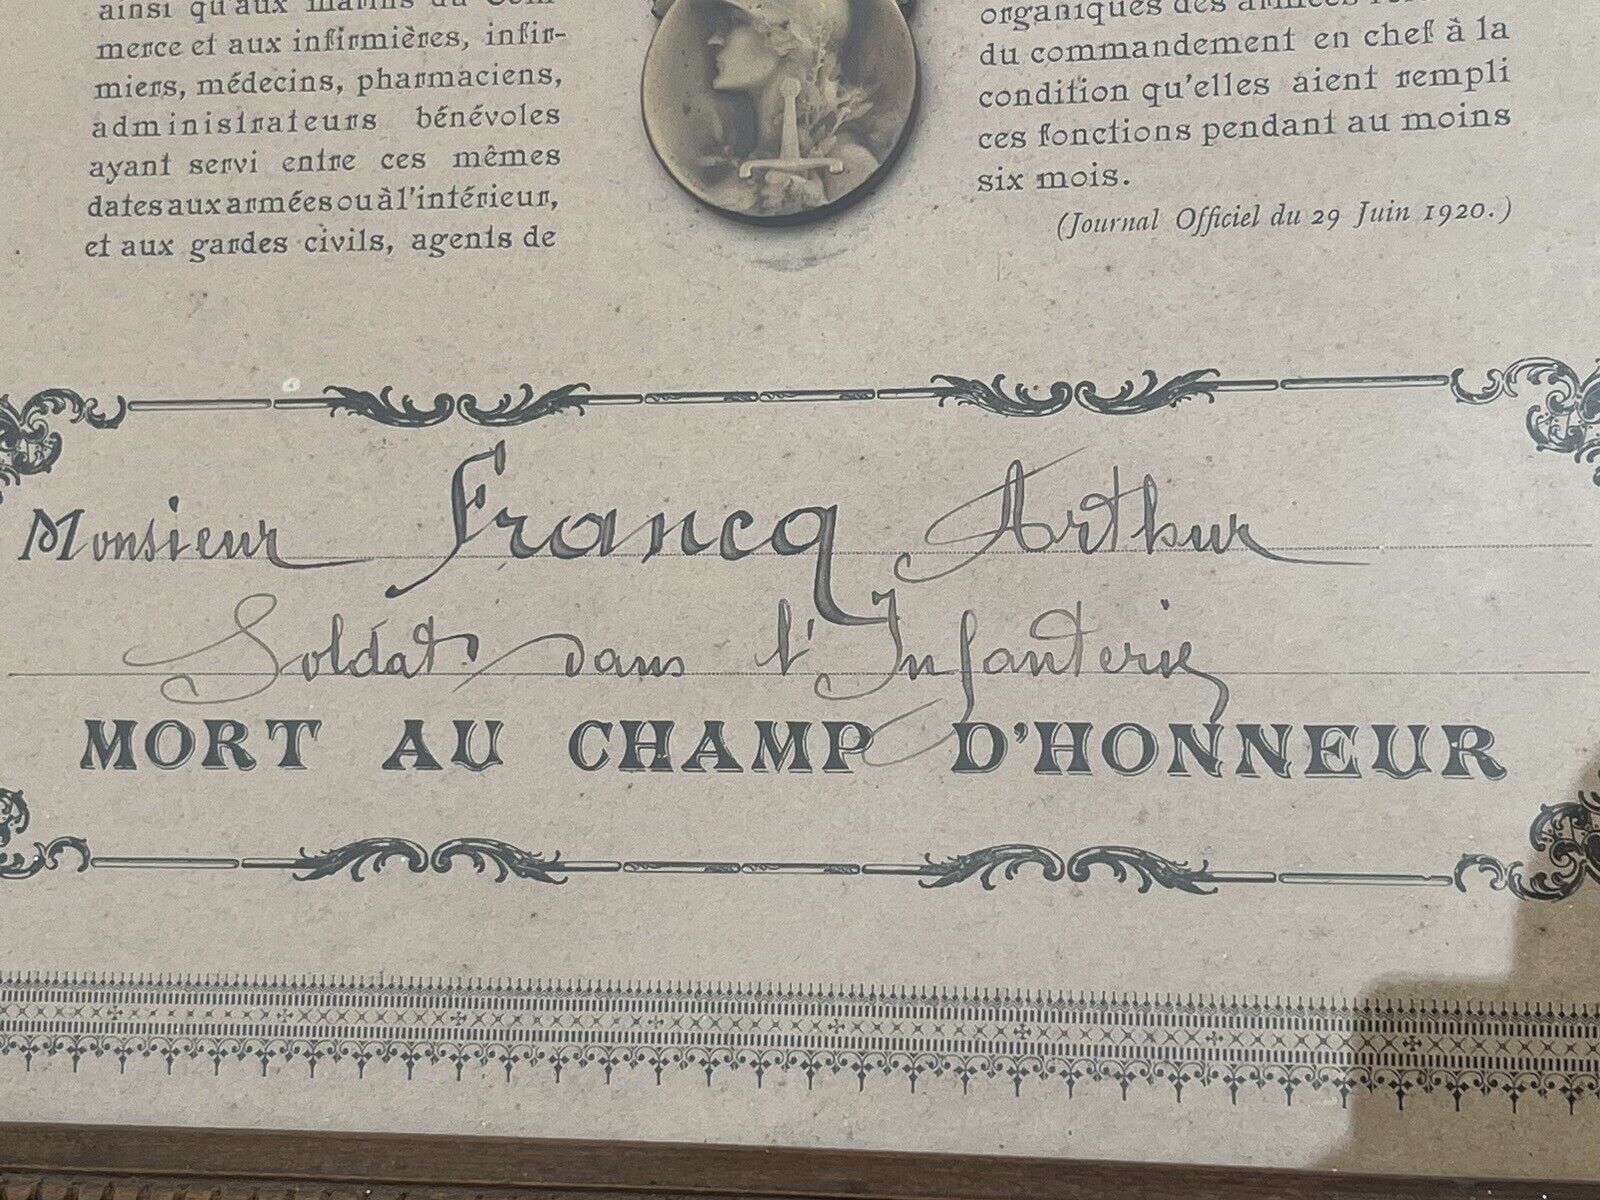 ainsi qu'aux marins du Com-
merce et aux infirmières, infir-
miers, médecins, pharmaciens,
administrateurs bénévoles
ayant servi entre ces mêmes
dates aux armées ou à l'intérieur,
et aux gardes civils, agents de
organiques des armées
du commandement en chef à la
condition qu'elles aient rempli
ces fonctions pendant au moins
six mois.
(Journal Officiel du 29 Juin 1920.)
Monsieur Francq Arthur
Soldat dans l'Infanterie
MORT AU CHAMP D'HONNEUR